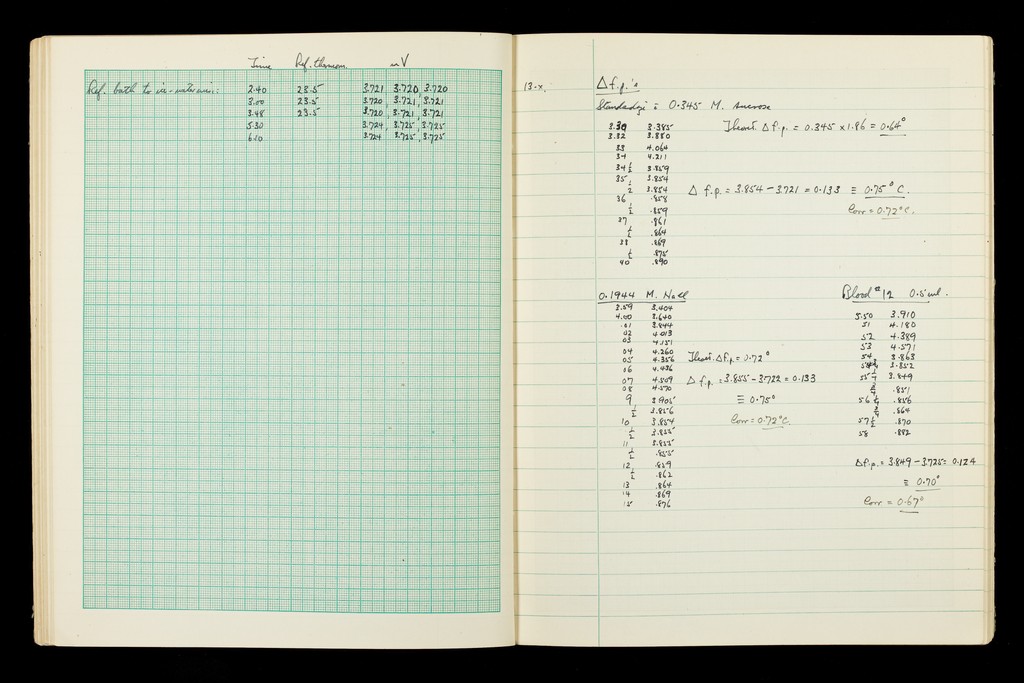 Time Ref. thermom. mV
Ref. bath to ice-water mix.: 2.40 23.5 3.721 3.720, 3.720
3.00 23.5 3.720, 3.721, 3.721
3.48 23.5 3.720, 3.721, 3.721
5.30 3.724, 3.725, 3.725
6.10 3.724 3.725, 3.725
13.x. Δ f.p.'s
0.345 M.
3.30 3.385 Theoret. Δ f.p. = 0.345 x 1.86 = 0.64°
3.32 3.880
33 4.064
34 4.211
34½ 3.859
35 3.854
½ 3.854 Δ f.p. = 3.854 – 3.721 = 0.133 ≡ 0.75° C.
36 .858
½ .859 Corr = 0.72° C.
37 .861
½ .864
38 .869
½ .875
40 .890
0.1944 M. NaCl
3.59 3.404
4.00 3.640
.01 3.844
02 4.013
03 4.151
04 4.260
05 4.356 Theoret. Δ f.p. = 0.72°
06 4.436
07 4.509 Δ f.p. = 3.855 – 3.722 = 0.133
08 4.570
9 3.905 ≡ 0.75°
½ 3.856
10 3.854 Corr = 0.72° C.
½ 3.855
11 3.855
½ .855
12 .859
½ .862
13 .864
14 .869
15 .876
Blood #12 0.5 ml.
5.50 3.910
51 4.180
52 4.389
53 4.571
54 3.863
54¾ 3.852
55¼ 3.849
¾ .851
56¼ .856
¾ .864
57½ .870
58 .882
Δ f.p. = 3.849 – 3.725 = 0.124
≡ 0.70°
Corr = 0.67°